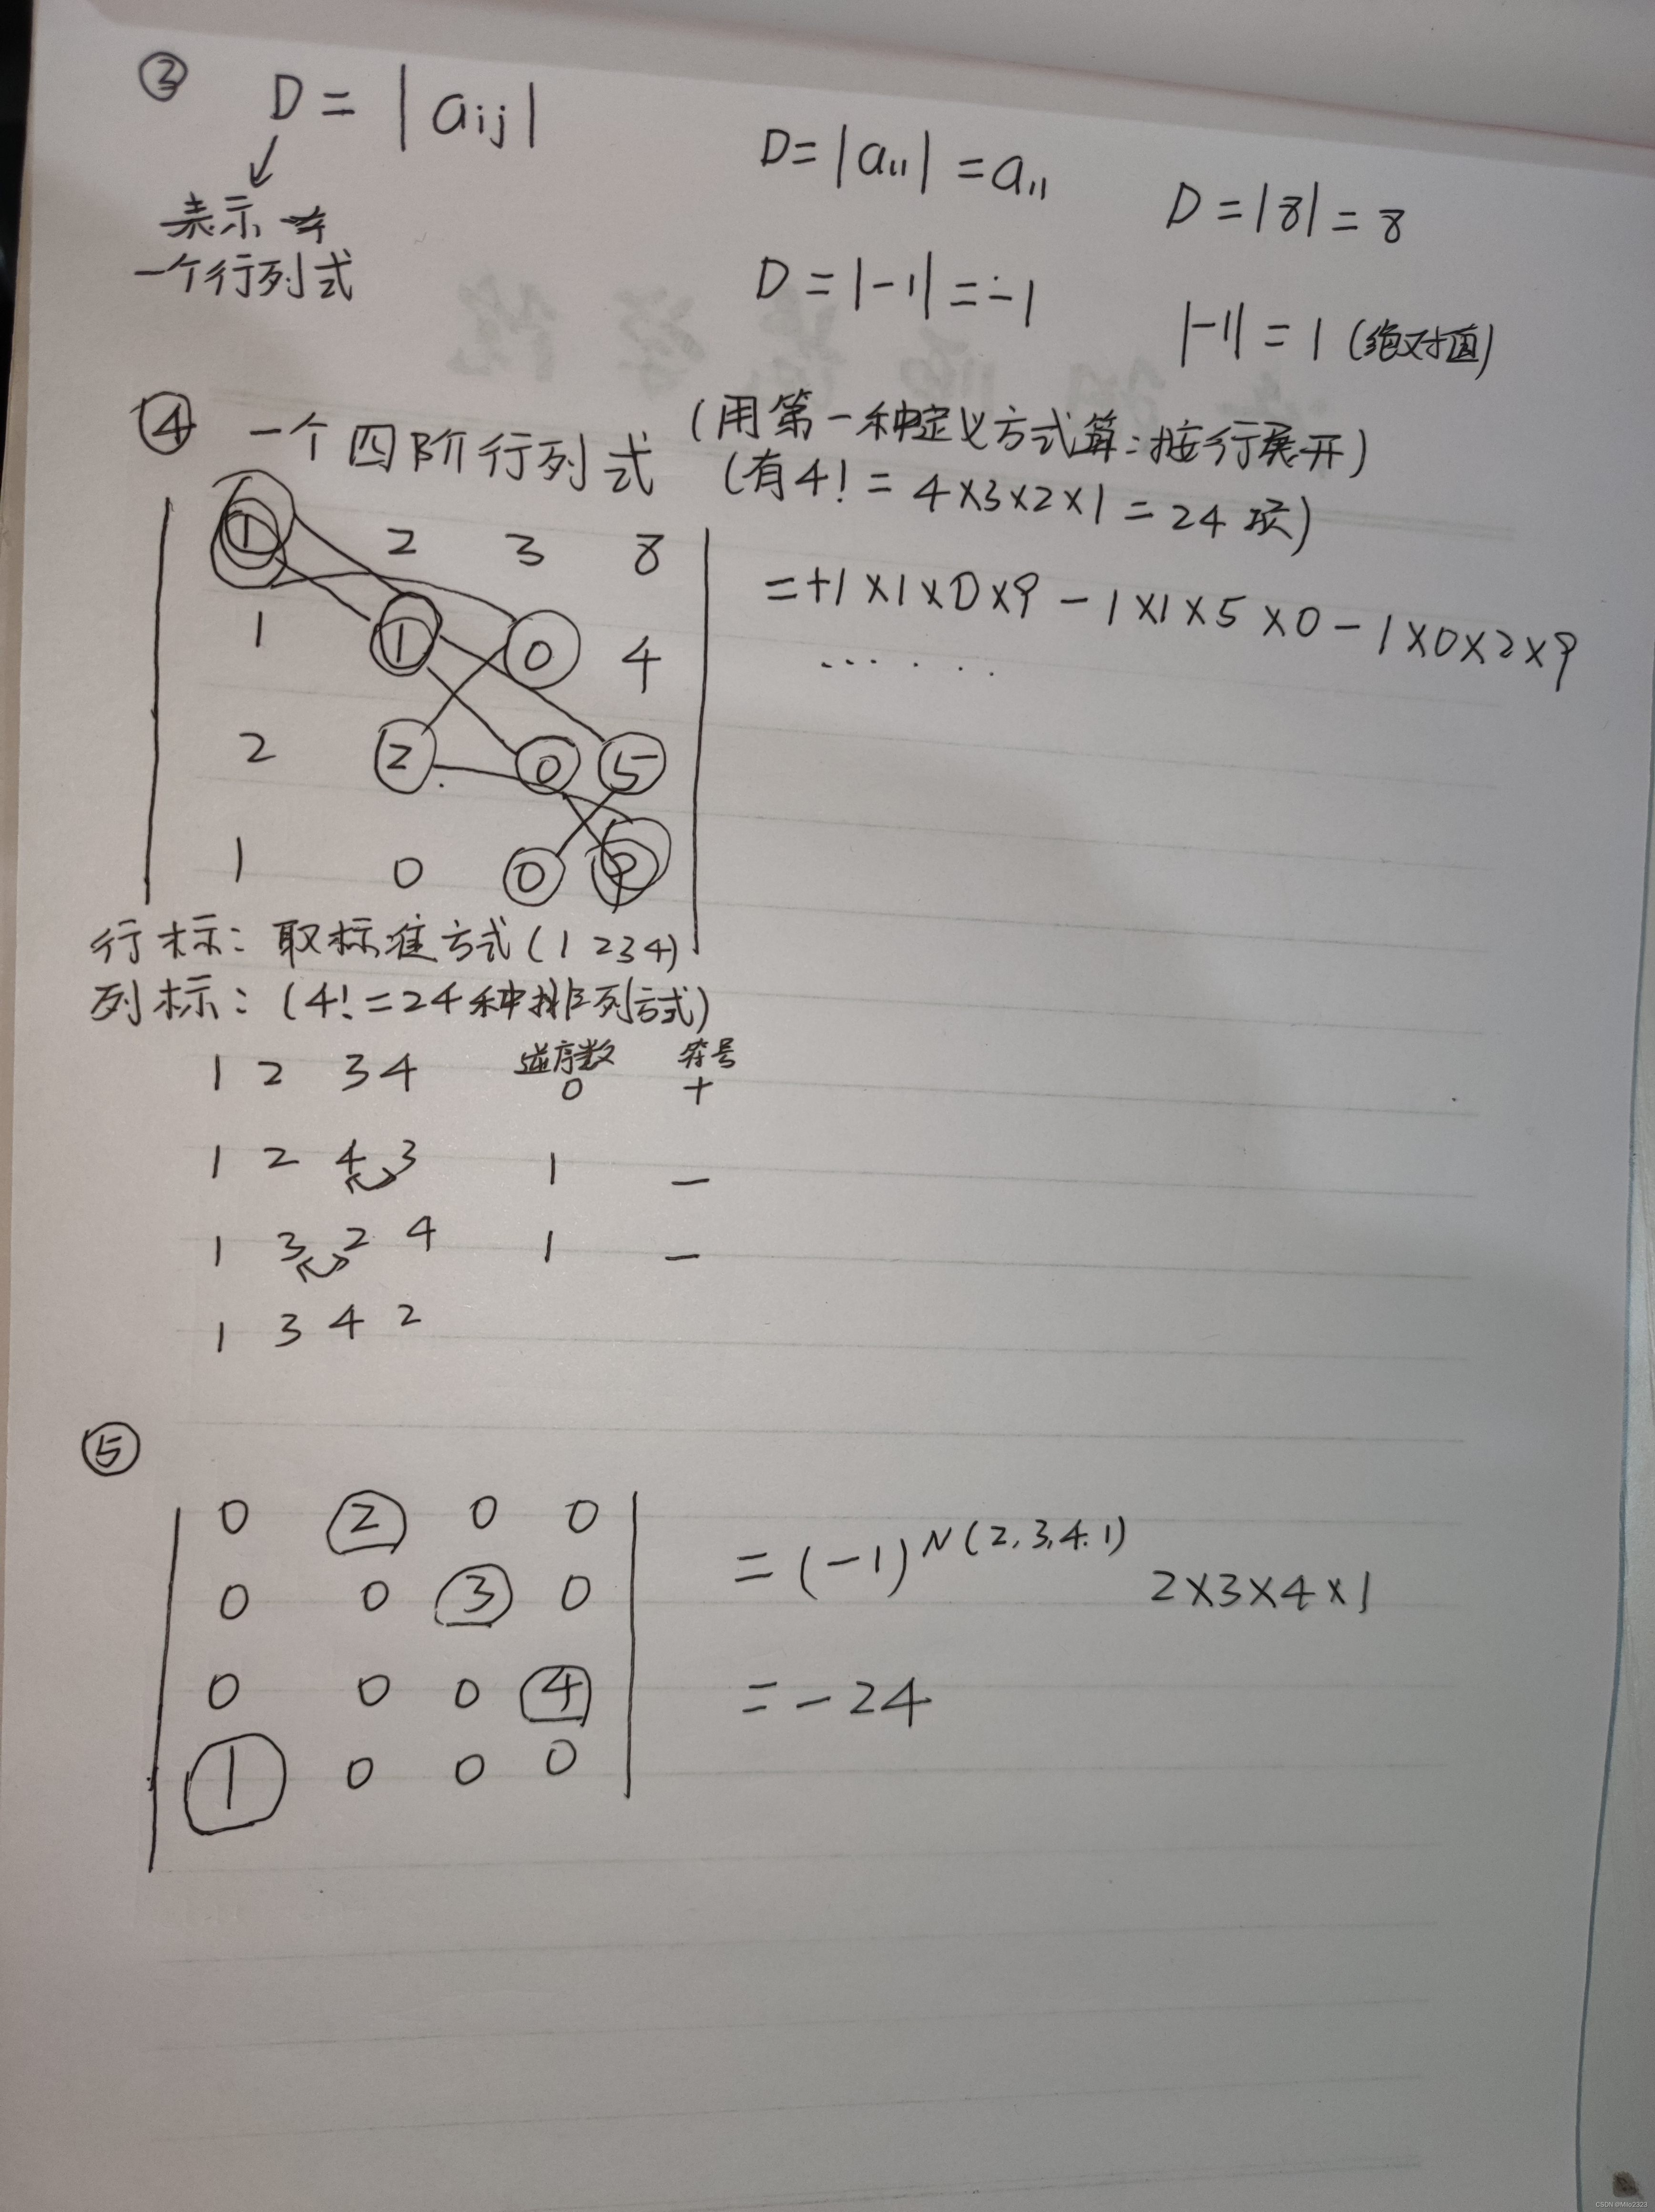 ③ D = | aij |
表示
一个行列式
D = |a11| = a11
D = |8| = 8
D = |-1| = -1
|-1| = 1 (绝对值)
④ 一个四阶行列式 (用第一种定义方式算:按行展开)
(有4! = 4×3×2×1 = 24 项)
1 2 3 8
1 1 0 4
2 2 0 5
1 0 0 9
= +1×1×0×9 - 1×1×5×0 - 1×0×2×9
......
行标: 取标准方式 (1 2 3 4)
列标: (4! = 24 种排列方式)
逆序数 符号
1 2 3 4 0 +
1 2 4 3 1 -
1 3 2 4 1 -
1 3 4 2
⑤
0 2 0 0
0 0 3 0
0 0 0 4
1 0 0 0
= (-1)^N(2,3,4.1) 2×3×4×1
= -24
CSDN @Milo2323